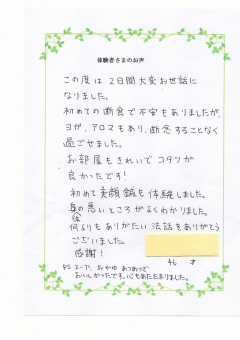 体験者さまのお声
この度は2日間大変お世話に
なりました。
初めての断食で不安もありましたが、
ヨガ、アロマもあり、断念することなく
過ごせました。
お部屋もきれいでコタツが
良かったです!
初めて美顔鍼も体験しました。
具の悪いところがよくわかりました。
何よりもありがたい法話をありがとう
ございました。
感謝!
46 才
P.S スープ、おかゆ あつあつで
おいしかったです。心もあたたまりました。